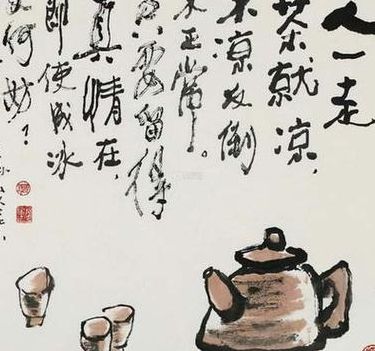 人一走
茶就凉，
不凉反倒
不正常。
只要留得
真情在，
即使成冰
何妨？